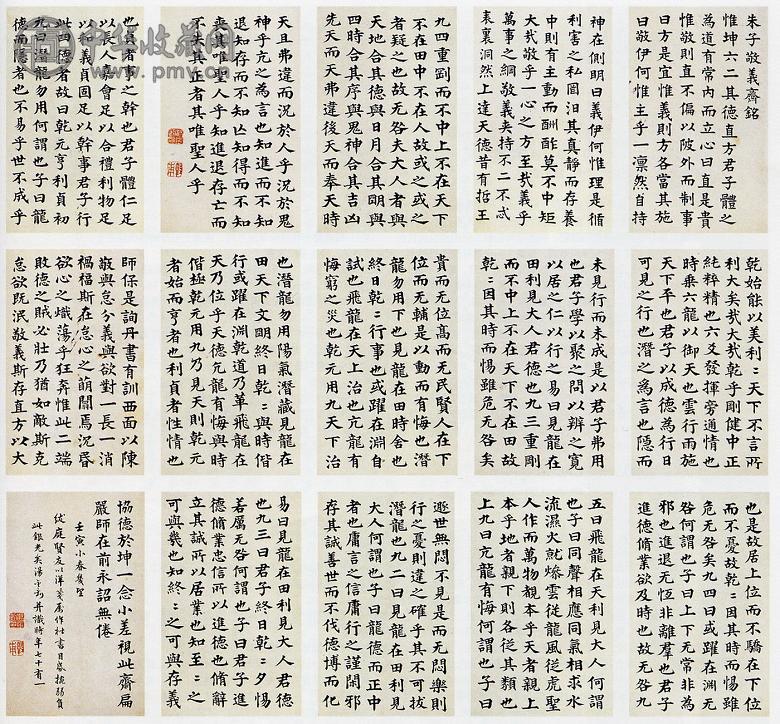 朱子敬義齋銘
惟坤六二其德直方君子體之
為道有常內而立心曰直是貴
惟敬則直不偏以陂外而制事
曰方是宜惟義則方各當其施
曰敬伊何惟主乎一凜然自持
神在側明曰義伊何惟理是循
利害之私罔汩其真靜而存養
中則有主動而酬酢莫不中矩
大哉敬乎一心之方至哉義乎
萬事之綱敬義夾持不二不忒
表裏洞然上達天德昔有哲王
九四重剛而不中上不在天下
不在田中不在人故或之或之
者疑之也故无咎夫大人者與
天地合其德與日月合其明與
四時合其序與鬼神合其吉凶
先天而天弗違後天而奉天時
天且弗違而況於人乎況於鬼
神乎亢之為言也知進而不知
退知存而不知亡知得而不知
喪其唯聖人乎知進退存亡而
不失其正者其唯聖人乎
也貞者事之幹也君子體仁足
以長人嘉會足以合禮利物足
以和義貞固足以幹事君子行
此四德者故曰乾元亨利貞初
九潛龍勿用何謂也子曰龍
德而隱者也不易乎世不成乎
乾始能以美利〻天下不言所
利大矣哉大哉乾乎剛健中正
純粹精也六爻發揮旁通情也
時乘六龍以御天也雲行雨施
天下平也君子以成德為行日
可見之行也潛之為言也隱而
未見行而未成是以君子弗用
也君子學以聚之問以辨之寬
以居之仁以行之易曰見龍在
田利見大人君德也九三重剛
而不中上不在天下不在田故
乾〻因其時而惕雖危无咎矣
貴而无位髙而无民賢人在下
位而无輔是以動而有悔也潛
龍勿用下也見龍在田時舍也
終日乾〻行事也或躍在淵自
試也飛龍在天上治也亢龍有
悔窮之災也乾元用九天下治
也潛龍勿用陽氣潛藏見龍在
田天下文明終日乾〻與時偕
行或躍在淵乾道乃革飛龍在
天乃位乎天德亢龍有悔與時
偕極乾元用九乃見天則乾元
者始而亨者也利貞者性情也
師保是詢丹書有訓西面以陳
敬與怠分義與欲對一長一消
禍福斯在怠心之萌闒焉沉昏
欲心之熾蕩乎狂奔惟此二端
敗德之賊必壯乃猶如敵斯克
怠欲既泯敬義斯存直方以大
也是故居上位而不驕在下位
而不憂故乾〻因其時而惕雖
危无咎矣九四曰或躍在淵无
咎何謂也子曰上下无常非為
邪也進退无恆非離羣也君子
進德脩業欲及時也故无咎九
五曰飛龍在天利見大人何謂
也子曰同聲相應同氣相求水
流濕火就燥雲從龍風從虎聖
人作而萬物覩本乎天者親上
本乎地者親下則各從其類也
上九曰亢龍有悔何謂也子曰
遯世无悶不見是而无悶樂則
行之憂則違之確乎其不可拔
潛龍也九二曰見龍在田利見
大人何謂也子曰龍德而正中
者也庸言之信庸行之謹閑邪
存其誠善世而不伐德博而化
易曰見龍在田利見大人君德
也九三曰君子終日乾〻夕惕
若厲无咎何謂也子曰君子進
德脩業忠信所以進德也脩辭
立其誠所以居業也知至〻之
可與幾也知終〻之可與存義
協德於坤一念小差視此齊扁
嚴師在前永詔無倦
壬寅小春幾望
紋庭賢友以洋箋屬作社書目昏腕弱負
此銀光矣湯金釗并識時年七十有一
中华收藏网
www.pmv.cn